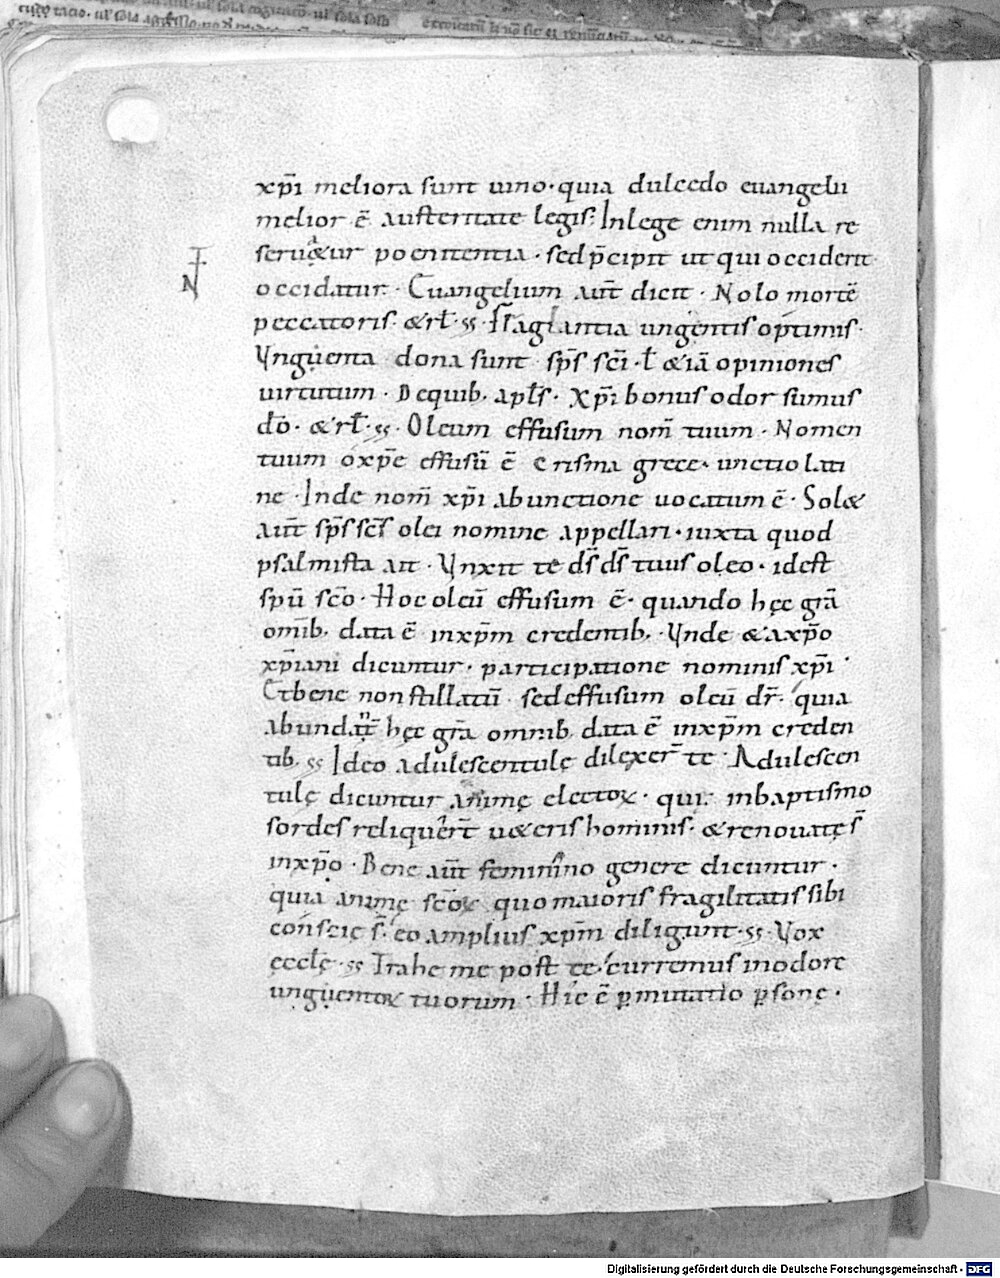 xp̄i meliora sunt uino · quia dulcedo euangelii
melior ē austeritate legis. In lege enim nulla re
seruatur poenitentia · sed p̄cipit ut qui occiderit
occidatur · Euangelium aut̄ dicit · Nolo mortē
peccatoris · & rł · ss · Fraglantia ungentis optimis ·
Vnguenta dona sunt sp̄s sc̄i · ł & iā opiniones
uirtutum · De quib, apłs · Xp̄i bonus odor sumus
dō · & rł · ss · Oleum effusum nom̄ tuum · Nomen
tuum o xp̄e effusū ē crisma grece · unctio lati
ne · Inde nom̄ xp̄i ab unctione uocatum ē · Sol&
aut̄ sp̄s sc̄s olei nomine appellari · iuxta quod
psalmista ait · Vnxit te ds̄ ds̄ tuus oleo · idest
spū scō · Hoc oleū effusum ē · quando hęc grā
omib, data ē in xp̄m credentib, · Vnde & a xp̄o
xp̄iani dicuntur · participatione nominis xp̄i ·
Et bene non stillatū · sed effusum oleū dr̄ · quia
abundant̄ hęc grā omnib, data ē in xp̄m creden
tib, ss Ideo adulescentulę dilexer̄ te · Adulescen
tulę dicuntur animę electoꝝ · quę in baptismo
sordes reliquer̄t u&eris hominis · & renouatę s̄
in xp̄o · Bene aut̄ feminino genere dicuntur ·
quia animę scōꝝ quo maioris fragilitatis sibi
conscię s̄ eo amplius xp̄m diligunt · ss · Vox
ęcclę · ss Trahe me post te · curremus in odore
unguentoꝝ tuorum · Hic ē p̱mutatio p̱sonę ·
N
Digitalisierung gefördert durch die Deutsche Forschungsgemeinschaft · DFG